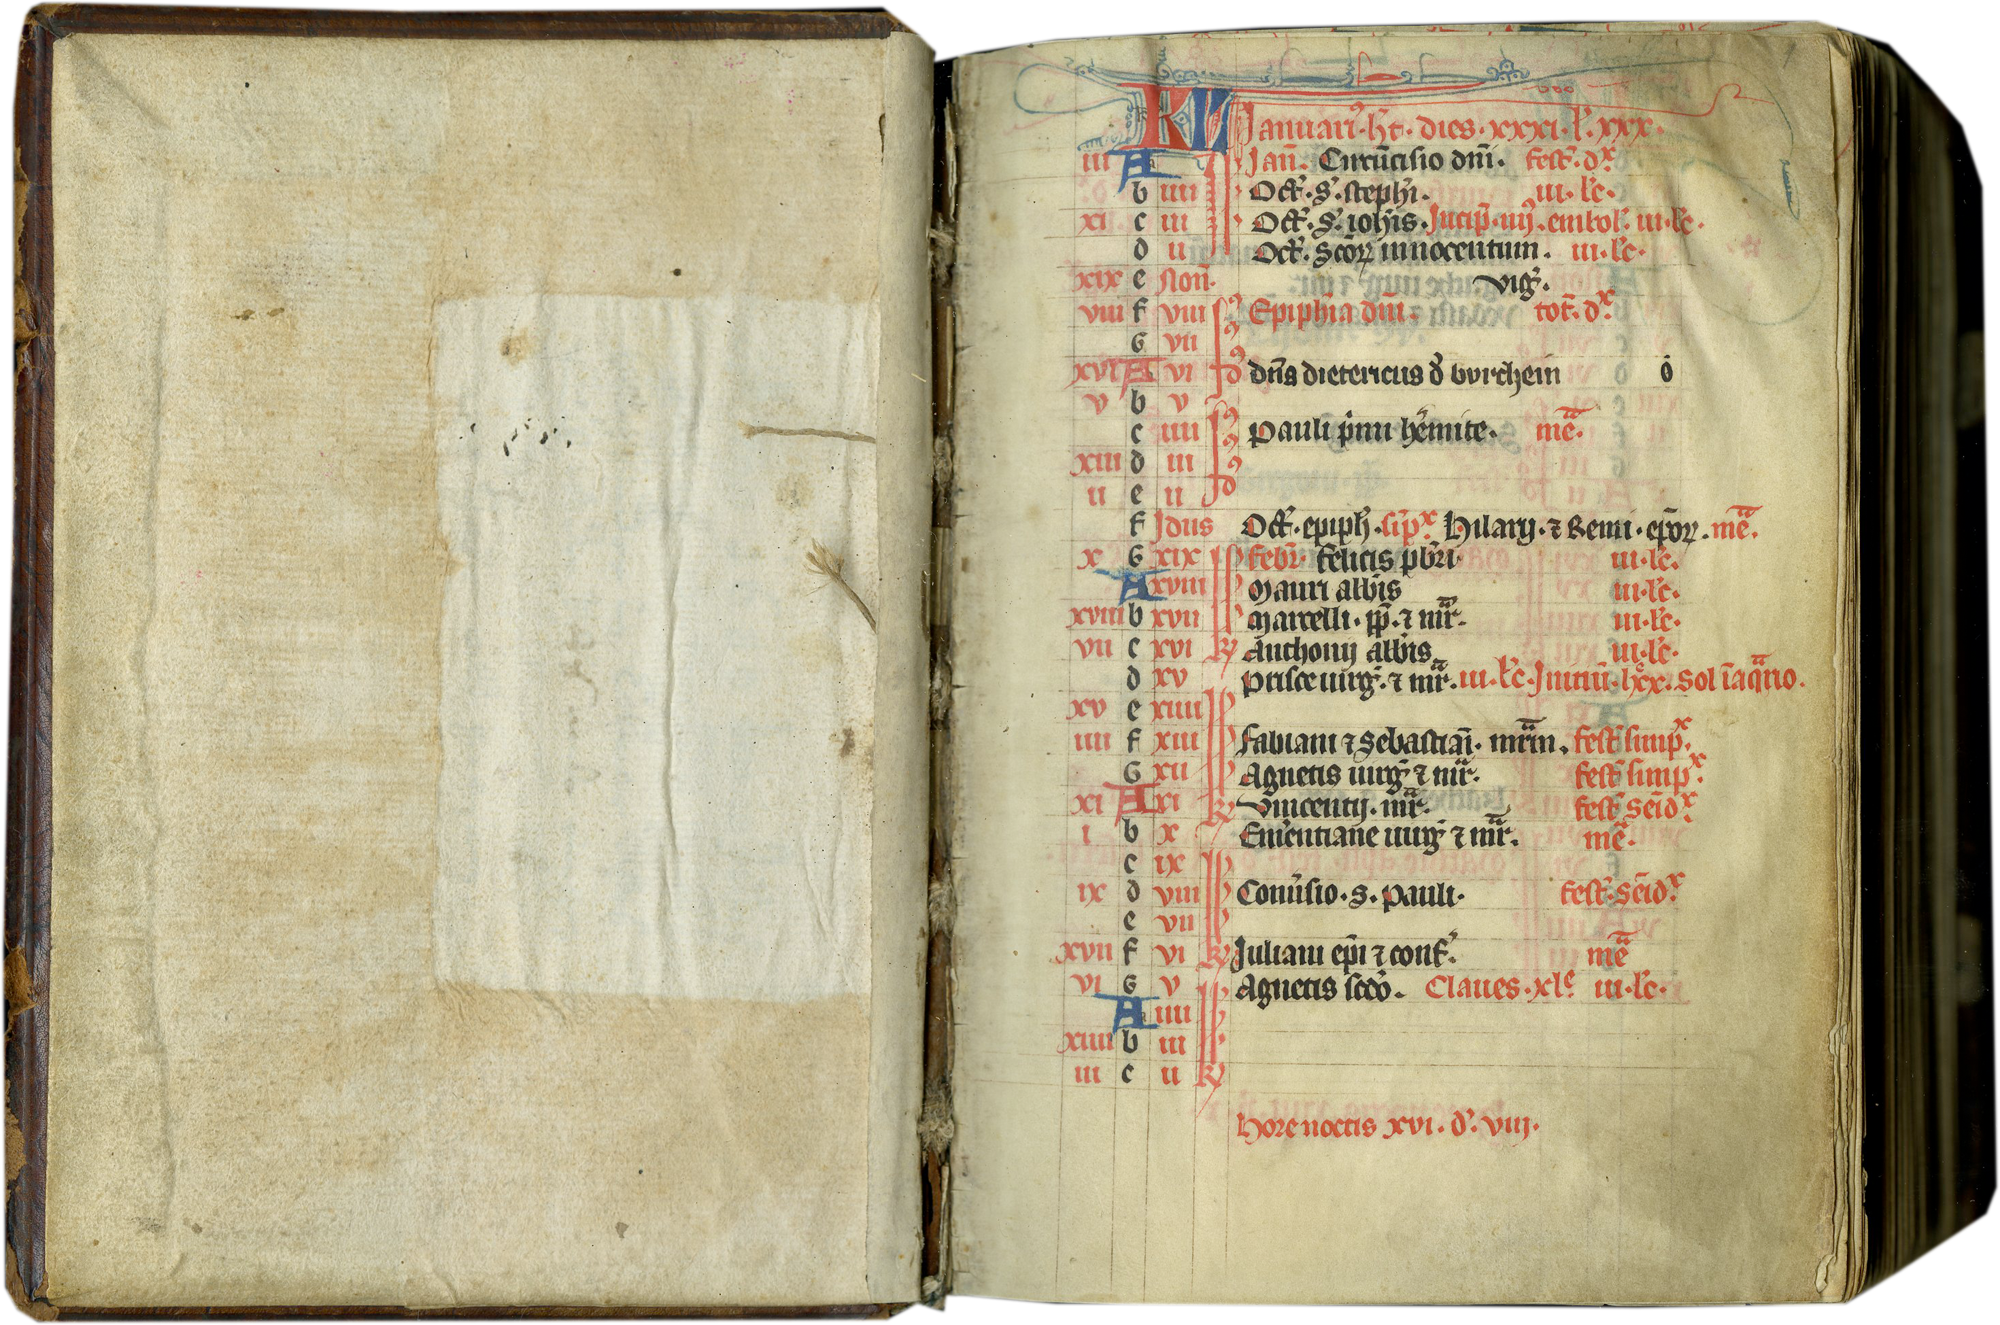 KL Januarius ht. dies. xxxi. l'. xxx.
iii A Jan̄. Circūcisio dn̄i. fest. dx
b iiii Oct'. s'. steph'i. iii. l'c.
xi c iii Oct'. s'. ioh'is. Incip̄. iiij. embol'. iii. l'c.
d ii Oct'. Scōꝝ innocentum. iii. l'c.
xix e Non̄. vig'.
viii f viii Epiph'ia dn̄i. tot'. dx
G vii
xvi A vi dn̄s dietericus d' burchein o
v b v
c iiii Pauli p'mi h'emite. mē.
xiii d iii
ii e ii
f Jdus Oct'. epiph'. si'px Hilarij. ⁊ Remi. ep̄oꝝ. mē.
x G xix Febr'. Felicis pb'ri iii. l'c.
A xviii Mauri abb'is iii. l'c.
xviii b xvii Marcelli. pp̄. ⁊ mr̄. iii. l'c.
vii c xvi Anthonij abb'is iii. l'c.
d xv Prisce uirg'. ⁊ mr̄. iii. l'c. Initiū. lxx. Sol ī aq̄rio.
xv e xiiii
iiii f xiii Fabiani ⁊ Sebastiani. mr̄m. fest' simpx.
G xii Agnetis uirg' ⁊ mr̄. fest' simpx.
xi A xi Vincentij. mr̄. fest' semidx.
i b x Em'entiane uirg' ⁊ mr̄. mē.
c ix
ix d viii Conu'sio. s. Pauli. fest'. semidx.
e vii
xvii f vi Juliani ep̄i ⁊ conf'. mē
vi G v Agnetis scd'o. Claues. xle iii. l'c.
A iiii
xiiii b iii
iii c ii
Hore noctis xvi. d'. viij.